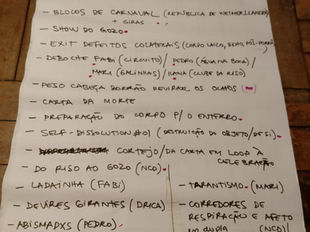 - BLOCOS DE CARNAVAL (REPÚBLICA DE WEIMAR,
+ GIRAS
- SHOW DO GOZO
- EXIT DEFEITOS COLATERAIS (CORPO ÚNICO,
- DEBOCHE FABI (CIRCUITO) / PEDRO (ÁGUA NA BOCA) /
MARI (GALINHAS) / (CLUBE DO RISO)
- PESO CABEÇA BORRÃO REVIRAR OS OLHOS
- CARTA DA MORTE
- PREPARAÇÃO DO CORPO P/ O ENTERRO
- SELF-DISSOLUTION #01 (DESTRUIÇÃO DO OBJETO/DE SI)
CORTEJO/DA CARTA EM LOOP À
CELEBRAÇÃO
- DO RISO AO GOZO (NCO)
- LADAINHA (FABI)
- DEVIRES GIRANTES (DRICA)
- ABISMADXS (PEDRO)
- TARANTISMO (MARI)
- CORREDORES DE
RESPIRAÇÃO E AFETO
(NCO)